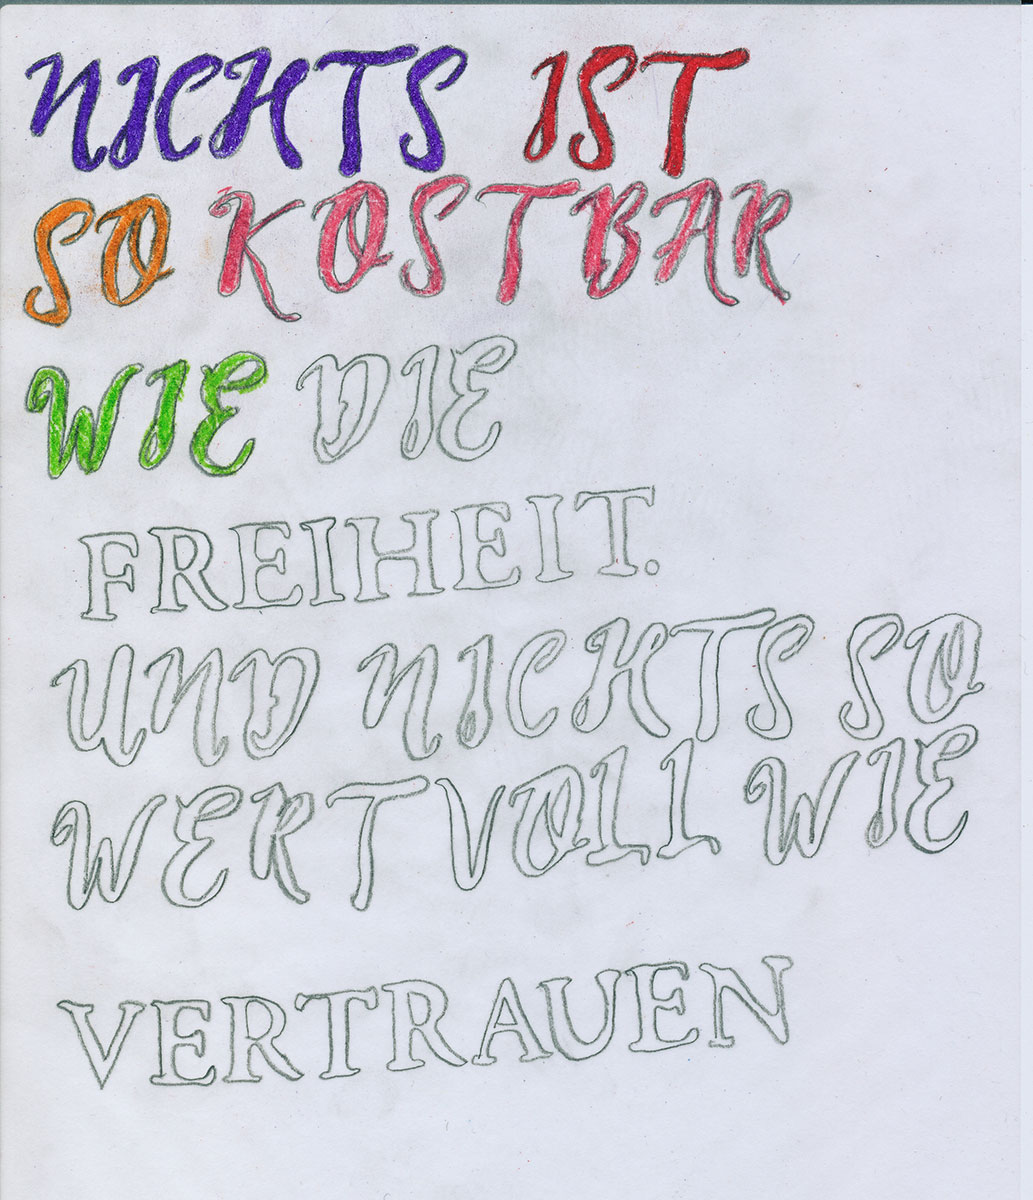 NICHTS IST
SO KOSTBAR
WIE DIE
FREIHEIT.
UND NICHTS SO
WERTVOLL WIE
VERTRAUEN